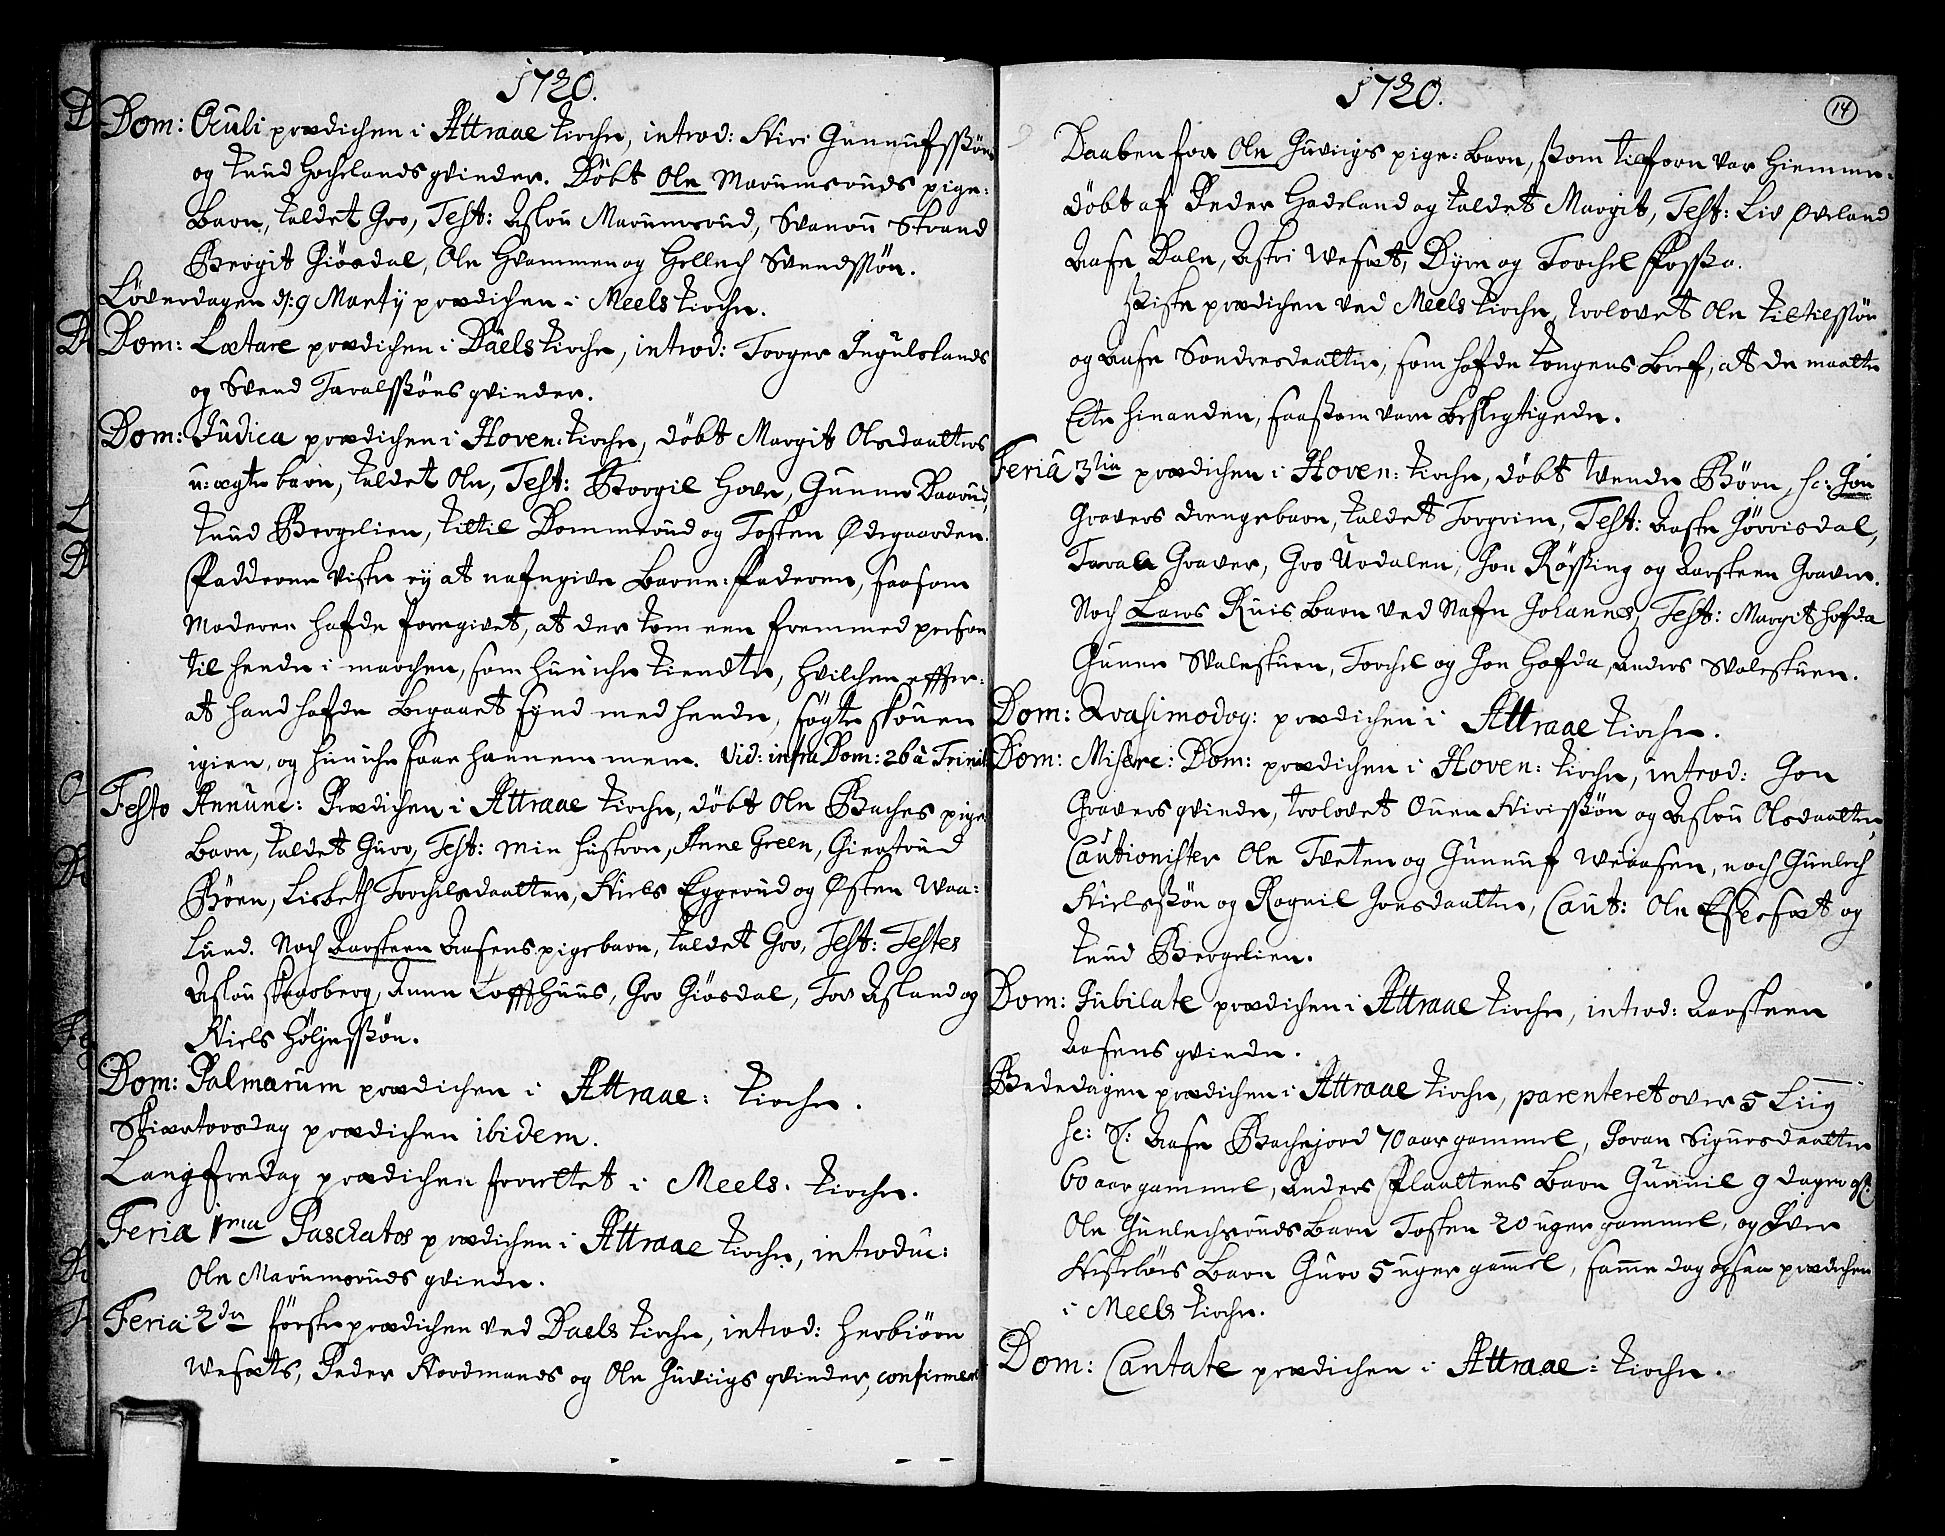 1720.
Dom: Oculi prædichen i Attraae Kirche, introd: Kiri Gunnufssøns
og Knud Hochelands qvinder. Döbt Ole Marumsruds pige-
Barn, kaldet Gro, Test: Aslou Marumsrud, Svanou Strand
Bergit Giösdal, Ole Hvammen og Hellech Svendssön.
Löverdagen d: 9 Marty prædichen i Meels Kirche.
Dom: Lætare prædichen i Daels Kirche, introd: Torger Ingulslands
og Svend Taralssöns qvinder.
Dom: Judica prædichen i Hoven: Kirche, döbt Margit Olsdaatters
u-ægte barn, kaldet Ole, Test: Borgil Hove, Gunner Daarud,
Knud Bergelien, Kittil Dommerud og Tosten Ødegaarden.
Fadderne viste ej at nafngive Barne-Faderen, saasom
Moderen hafde foregivet, at der kom een fremmed person
til hende i marchen, som hun iche kiendte, hvilchen effter-
at hand hafde begaaet synd med hende, søgte skouen
igien, og hun iche saae hannem mere. Vid: infra Dom: 26 à Trinit
Festo Annunc: Prædichen i Attraae Kirche, döbt Ole Baches pige
Barn, kaldet Guro, Test: min hustroe, Anne Green, Giertrud
Böen, Lisbeth Torchilsdaatter, Niels Eggerud og Østen Waa-
Lund. Noch Aarsteen Aasens pigebarn, kaldet Gro, Test: Testes
Aslou Skarsberg, Anne Loffthuus, Gro Giösdal, Tov Aasland og
Niels Höljessön.
Dom: Palmarum prædichen i Attraae: Kirche.
Skiertorsdag prædichen ibidem.
Langfredag prædichen forrettet i Meels. Kirche.
Feria 1ma Paschatos prædichen i Attraae Kirche, introduc:
Ole Marumsruds qvinde.
Feria 2da förste prædichen ved Daels Kirche, introd: Herbiörn
Wefæts, Peder Nordmands og Ole Guviigs qvinder, confirmert
1720.
14
Daaben for Ole Guviigs pige-Barn, som tilforn var hiemme-
döbt af Peder Hadeland og kaldet Margit, Test: Liv Øveland
Aase Dale, Astri Wefæt, Dyre og Torchel Fosso.
Siste prædichen ved Meels Kirche, trolovet Ole Kittilssön
og Aase Sondresdaatter, som hafde Kongens Bref, at de maatte
Ecte hinanden, saasom vare beslegtigede.
Feria 3tia prædichen i Hoven: Kirche, döbt tvende Börn, sc: Jon
Gravers drengebarn, kaldet Torgrim, Test: Aaste Jörrisdal,
Taral Graver, Gro Urdalen, Jon Rössing og Aarsteen Graver.
Noch Lars Ruis Barn ved Nafn Johannes, Test: Margit Hofda
Guner Waleskuen, Torchel og Jon Hofda, Anders Waleskuen.
Dom: Qvasimodog: prædichen i Attraae Kirche.
Dom: Misere: Dom: prædichen i Hoven: Kirche, introd: Jon
Gravers qvinde, trolovet Ouen Kirissön og Aslou Olsdaatter
Cautionister Ole Tveten og Gunnuf Weaasen, noch Gunlech
Nielssön og Ragnil Jonsdaatter, Caut: Ole Esperset og
Knud Bergelien.
Dom: Jubilate prædichen i Attraae Kirche, introd: Aarsteen
Aasens qvinde.
Bededagen prædichen i Attraae Kirche, parenteret over 5 Liig
sc: Aase Bachejord 70 aar gammel, Joran Sigursdaatter
60 aar gammel, Anders Flaattens Barn Gunnil 9 dager
Ole Gunlechsruds Barn Tosten 20 uger gammel, og Iver
Nisteløis Barn Guro 5 uger gammel, samme dag ogsaa prædichen
i Meels Kirche.
Dom: Cantate prædichen i Attraae: Kirche.